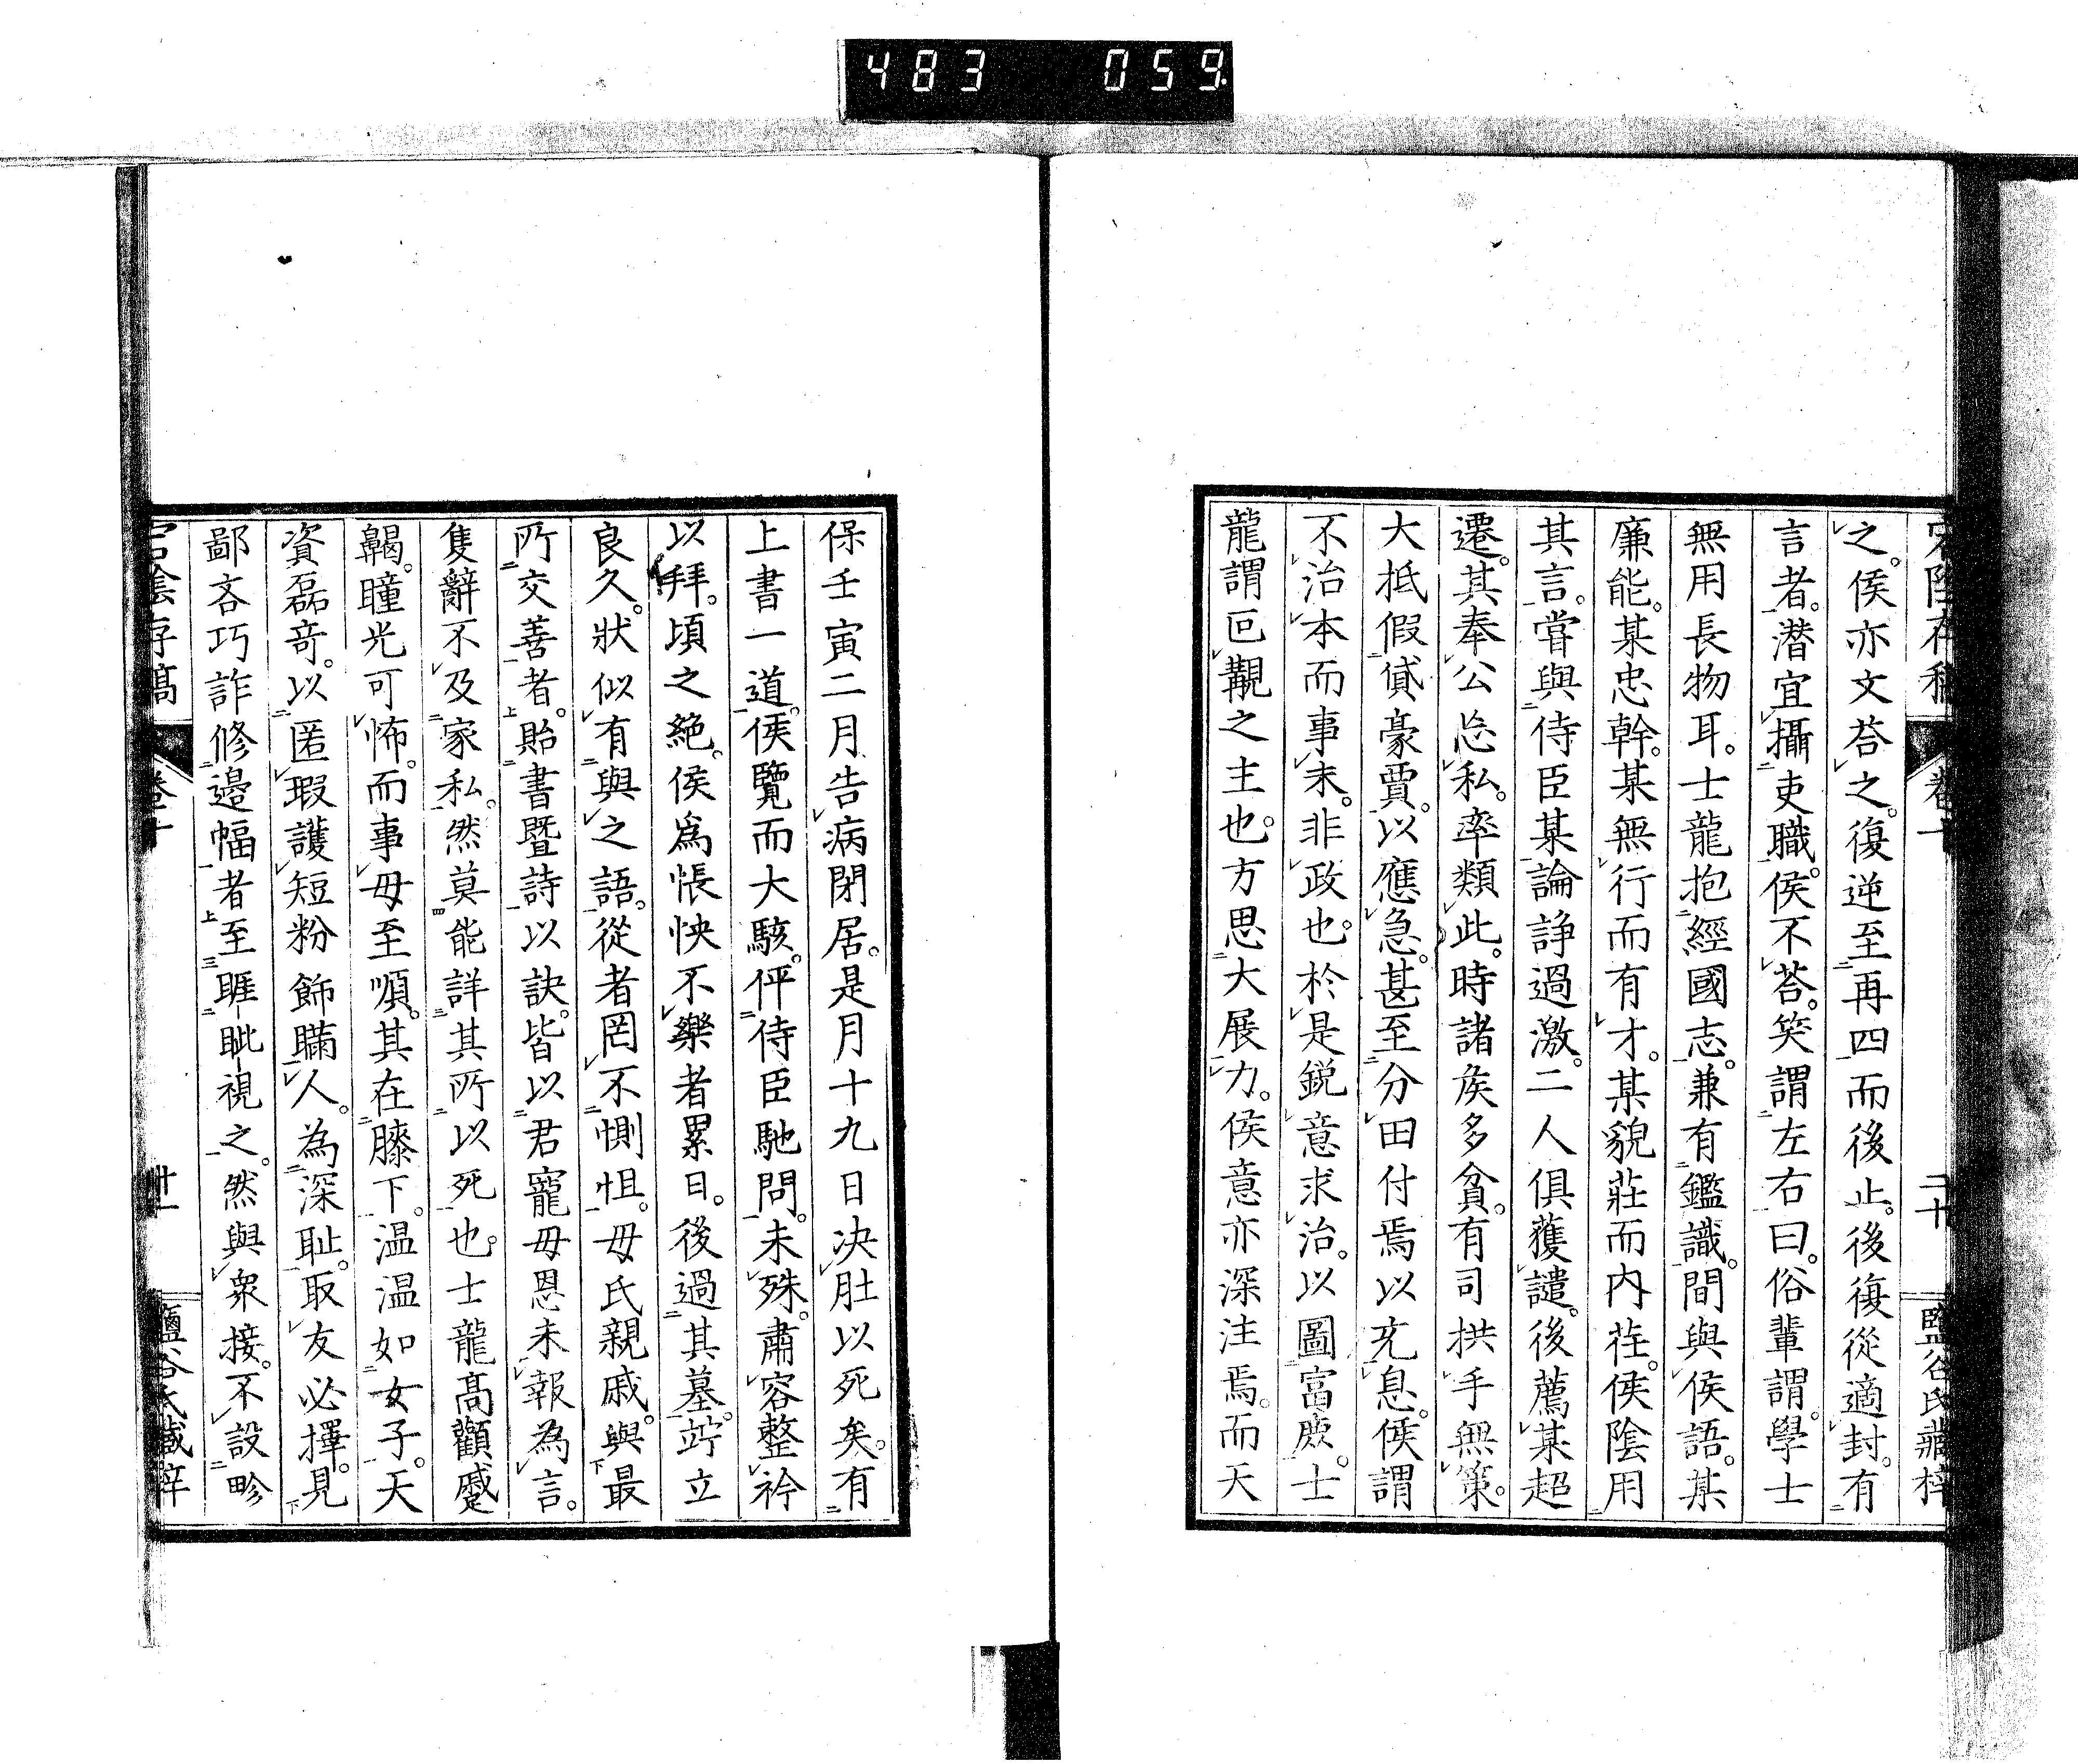 483 059
宕陰存稿 卷十 二十 鹽谷氏藏梓
之。侯亦文荅之。復逆至再四而後止。後復從適封。有
言者。潛宜攝吏職。侯不荅。笑謂左右曰。俗輩謂。學士
無用長物耳。士龍抱經國志。兼有鑑識。間與侯語。某
廉能。某忠幹。某無行而有才。某貌莊而内荏。侯陰用
其言。嘗與侍臣某論諍過激。二人俱獲譴。後薦某超
遷。其奉公忘私。率類此。時諸矦多貧。有司拱手無策。
大抵假貸豪賈。以應急。甚至分田付焉以充息。侯謂
不治本而事末。非政也。於是鋭意求治。以圖富庶。士
龍謂叵覯之主也。方思大展力。侯意亦深注焉。而天
保壬寅二月告病閉居。是月十九日决肚以死矣。有
上書一道。侯覽而大駭。伻侍臣馳問。未殊。肅容整衿
以拜。頃之絶。侯爲悵怏不樂者累日。後過其墓。竚立
良久。狀似有與之語。從者罔不惻怛。毋氏親戚。與最
所交善者。貽書暨詩以訣。皆以君寵毋恩未報為言。
隻辭不及家私。然莫能詳其所以死也。士龍髙顴蹙
齃。瞳光可怖。而事毋至順。其在膝下。温温如女子。天
資磊竒。以匿瑕護短粉飾瞞人。為深耻。取友必擇。見
鄙吝巧詐修邉幅者至睚眦視之。然與衆接。不設畛
宕陰存稿 卷十 廿一 鹽谷氏藏梓